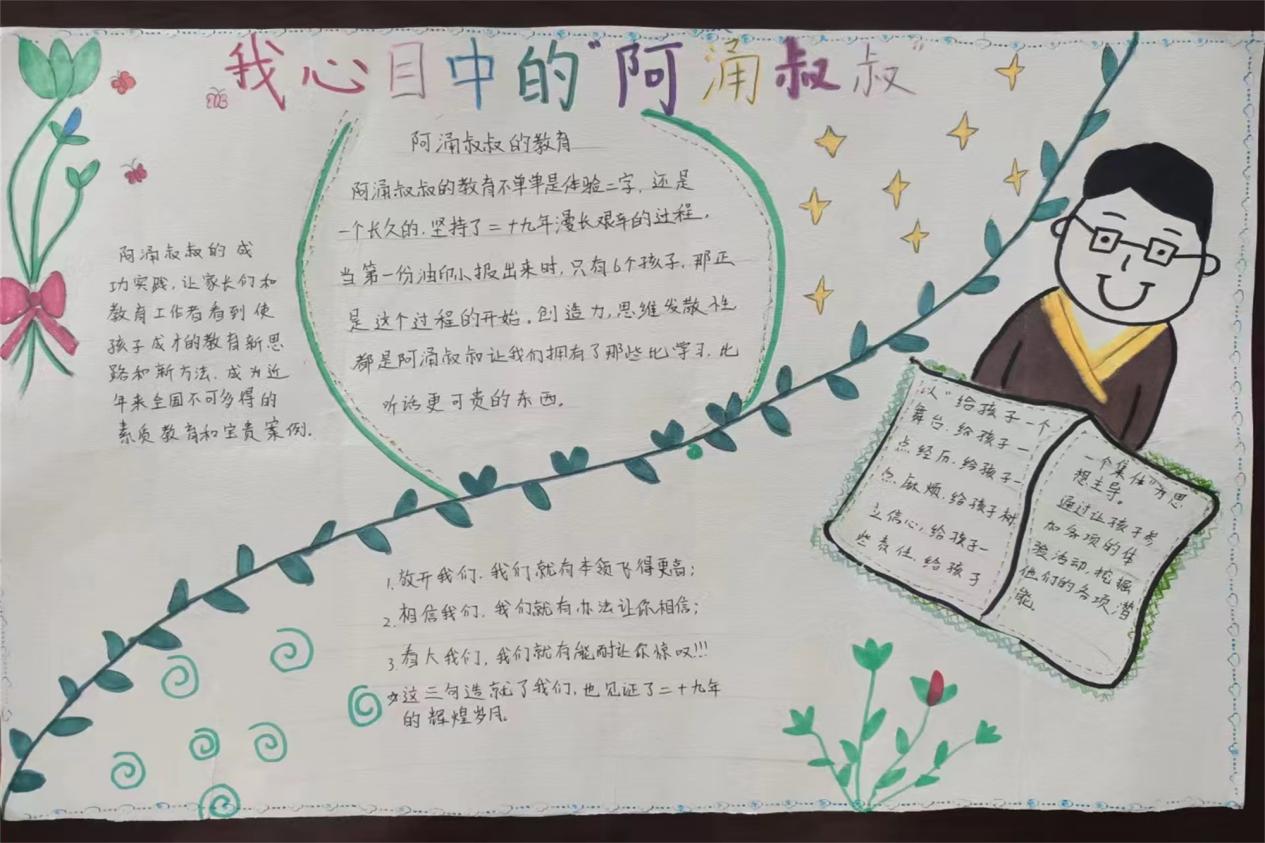 我心目中的"阿涌叔叔"
阿涌叔叔的成
功实践，让家长们和
教育工作者看到使
孩子成才的教育新思
路和新方法，成为近
年来全国不可多得的
素质教育和宝贵案例.
阿涌叔叔的教育
阿涌叔叔的教育不单单是体验二字，还是
一个长久的，坚持了二十九年漫长艰辛的过程，
当第一份油印小报出来时，只有6个孩子，那正
是这个过程的开始，创造力，思维发散性
都是阿涌叔叔让我们拥有了那些比学习，比
听话更可贵的东西。
以"给孩子一个
舞台，给孩子一
点经历，给孩子一
点麻烦，给孩子树
立信心，给孩子一
些责任，给孩子
一个集体"为思
想主导。
通过让孩子参
加各项的体
验活动，挖掘
他们的各项潜
能。
1.放开我们，我们就有本领飞得更高；
2.相信我们，我们就有办法让你相信；
3.看大我们，我们就有能耐让你惊叹!!!
这三句造就了我们，也见证了二十九年
的辉煌岁月。